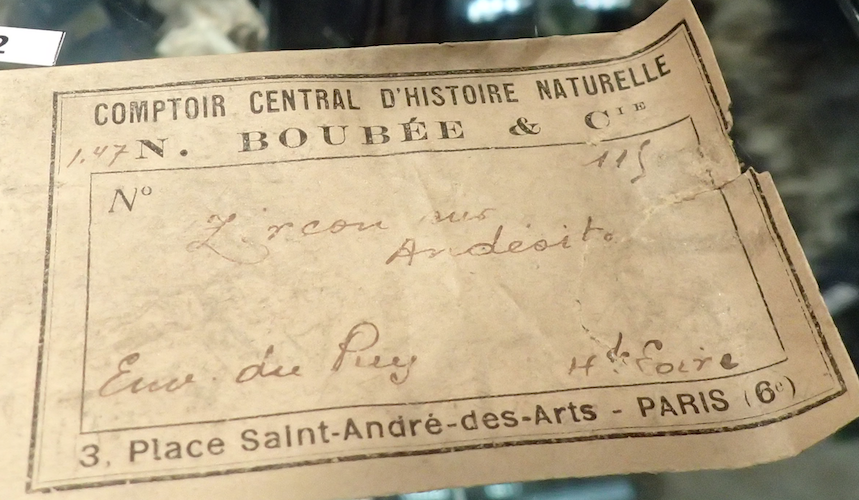 2
COMPTOIR CENTRAL D'HISTOIRE NATURELLE
N. BOUBÉE & CIE
1.47
115
No
Zircon sur
Andésite
Env. du Puy
Hte Loire
3, Place Saint-André-des-Arts - PARIS (6e)